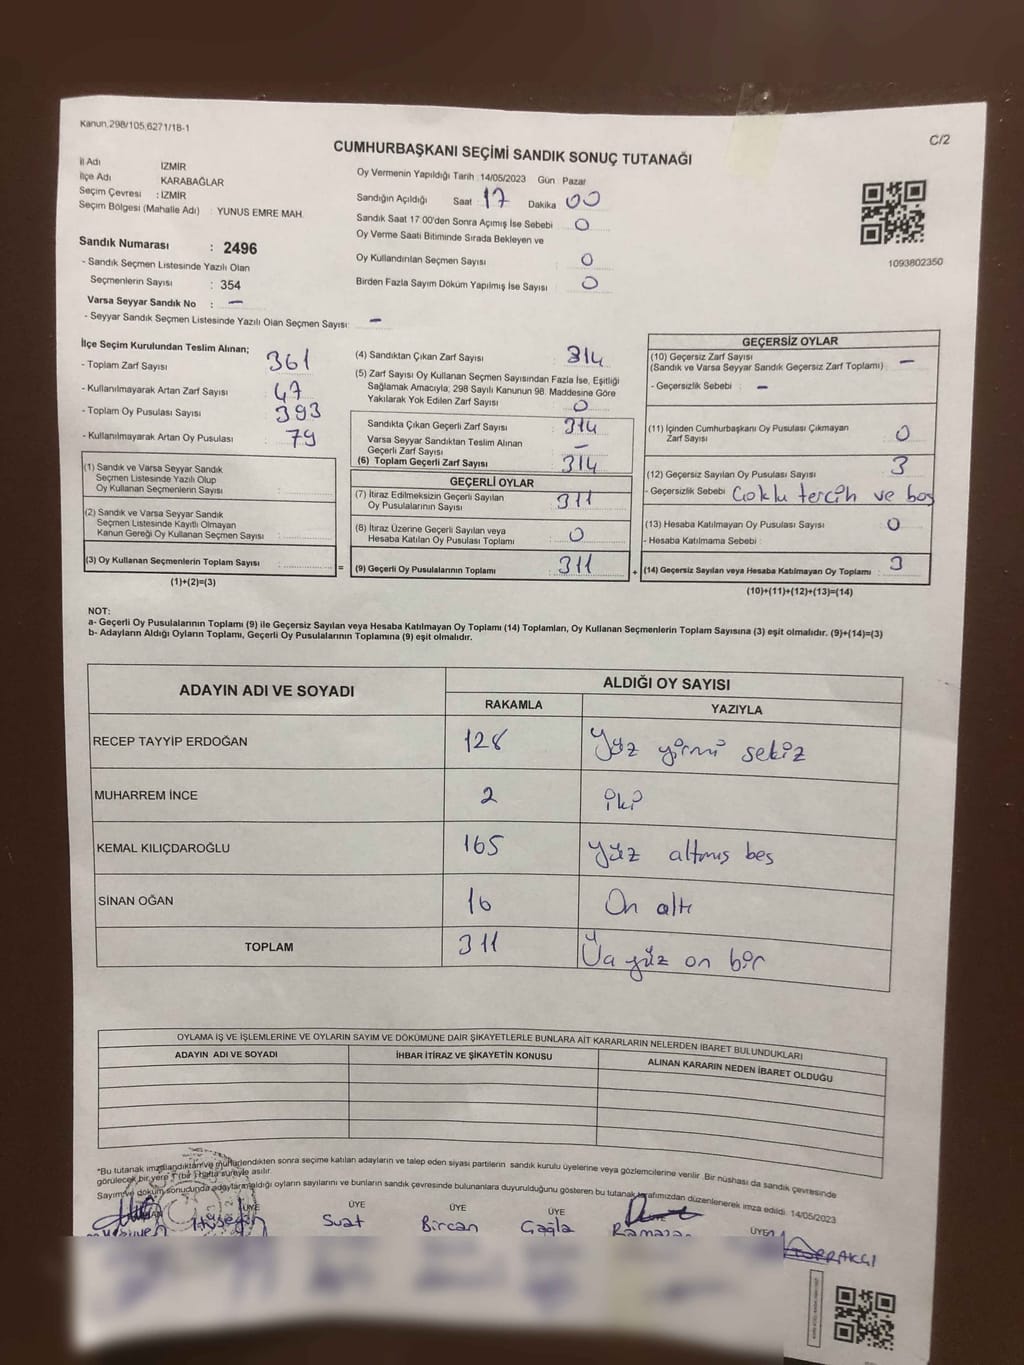 Kanun,298/105,6271/18-1
C/2
CUMHURBAŞKANI SEÇİMİ SANDIK SONUÇ TUTANAĞI
İl Adı İZMİR
İlçe Adı KARABAĞLAR
Seçim Çevresi : İZMİR
Seçim Bölgesi (Mahalle Adı) : YUNUS EMRE MAH.
Sandık Numarası : 2496
- Sandık Seçmen Listesinde Yazılı Olan
Seçmenlerin Sayısı : 354
Varsa Seyyar Sandık No : –
- Seyyar Sandık Seçmen Listesinde Yazılı Olan Seçmen Sayısı: –
Oy Vermenin Yapıldığı Tarih :14/05/2023 Gün Pazar
Sandığın Açıldığı Saat 17 Dakika 00
Sandık Saat 17 00'den Sonra Açımış İse Sebebi 0
Oy Verme Saati Bitiminde Sırada Bekleyen ve
Oy Kullandırılan Seçmen Sayısı 0
Birden Fazla Sayım Döküm Yapılmış İse Sayısı 0
1093802350
İlçe Seçim Kurulundan Teslim Alınan;
- Toplam Zarf Sayısı 361
- Kullanılmayarak Artan Zarf Sayısı 47
- Toplam Oy Pusulası Sayısı 393
- Kullanılmayarak Artan Oy Pusulası 79
(1) Sandık ve Varsa Seyyar Sandık
Seçmen Listesinde Yazılı Olup
Oy Kullanan Seçmenlerin Sayısı :
(2) Sandık ve Varsa Seyyar Sandık
Seçmen Listesinde Kayıtlı Olmayan
Kanun Gereği Oy Kullanan Seçmen Sayısı :
(3) Oy Kullanan Seçmenlerin Toplam Sayısı : =
(1)+(2)=(3)
(4) Sandıktan Çıkan Zarf Sayısı 314
(5) Zarf Sayısı Oy Kullanan Seçmen Sayısından Fazla İse, Eşitliği
Sağlamak Amacıyla; 298 Sayılı Kanunun 98. Maddesine Göre
Yakılarak Yok Edilen Zarf Sayısı 0
Sandıkta Çıkan Geçerli Zarf Sayısı : 314
Varsa Seyyar Sandıktan Teslim Alınan
Geçerli Zarf Sayısı : –
(6) Toplam Geçerli Zarf Sayısı : 314
GEÇERLİ OYLAR
(7) İtiraz Edilmeksizin Geçerli Sayılan
Oy Pusulalarının Sayısı : 311
(8) İtiraz Üzerine Geçerli Sayılan veya
Hesaba Katılan Oy Pusulası Toplamı : 0
(9) Geçerli Oy Pusulalarının Toplamı : 311 +
GEÇERSİZ OYLAR
(10) Geçersiz Zarf Sayısı
(Sandık ve Varsa Seyyar Sandık Geçersiz Zarf Toplamı) –
- Geçersizlik Sebebi : –
(11) İçinden Cumhurbaşkanı Oy Pusulası Çıkmayan
Zarf Sayısı 0
(12) Geçersiz Sayılan Oy Pusulası Sayısı 3
- Geçersizlik Sebebi Çoklu tercih ve boş
(13) Hesaba Katılmayan Oy Pusulası Sayısı 0
- Hesaba Katılmama Sebebi :
(14) Geçersiz Sayılan veya Hesaba Katılmayan Oy Toplamı : 3
(10)+(11)+(12)+(13)=(14)
NOT:
a- Geçerli Oy Pusulalarının Toplamı (9) ile Geçersiz Sayılan veya Hesaba Katılmayan Oy Toplamı (14) Toplamları, Oy Kullanan Seçmenlerin Toplam Sayısına (3) eşit olmalıdır. (9)+(14)=(3)
b- Adayların Aldığı Oyların Toplamı, Geçerli Oy Pusulalarının Toplamına (9) eşit olmalıdır.
ADAYIN ADI VE SOYADI ALDIĞI OY SAYISI
RAKAMLA YAZIYLA
RECEP TAYYİP ERDOĞAN 128 Yüz yirmi sekiz
MUHARREM İNCE 2 iki
KEMAL KILIÇDAROĞLU 165 yüz altmış beş
SİNAN OĞAN 16 On altı
TOPLAM 311 Üç yüz on bir
OYLAMA İŞ VE İŞLEMLERİNE VE OYLARIN SAYIM VE DÖKÜMÜNE DAİR ŞİKAYETLERLE BUNLARA AİT KARARLARIN NELERDEN İBARET BULUNDUKLARI
ADAYIN ADI VE SOYADI İHBAR İTİRAZ VE ŞİKAYETİN KONUSU ALINAN KARARIN NEDEN İBARET OLDUĞU
*Bu tutanak imzalandıktan ve mühürlendikten sonra seçime katılan adayların ve talep eden siyasi partilerin sandık kurulu üyelerine veya gözlemcilerine verilir. Bir nüshası da sandık çevresinde
görülecek bir yere 1 (bir) hafta süreyle asılır.
Sayım ve döküm sonucunda adayların aldığı oyların sayılarını ve bunların sandık çevresinde bulunanlara duyurulduğunu gösteren bu tutanak tarafımızdan düzenlenerek imza edildi. 14/05/2023
ÜYE ÜYE ÜYE ÜYE ÜYE
Suat Bircan Çağla Ramazan